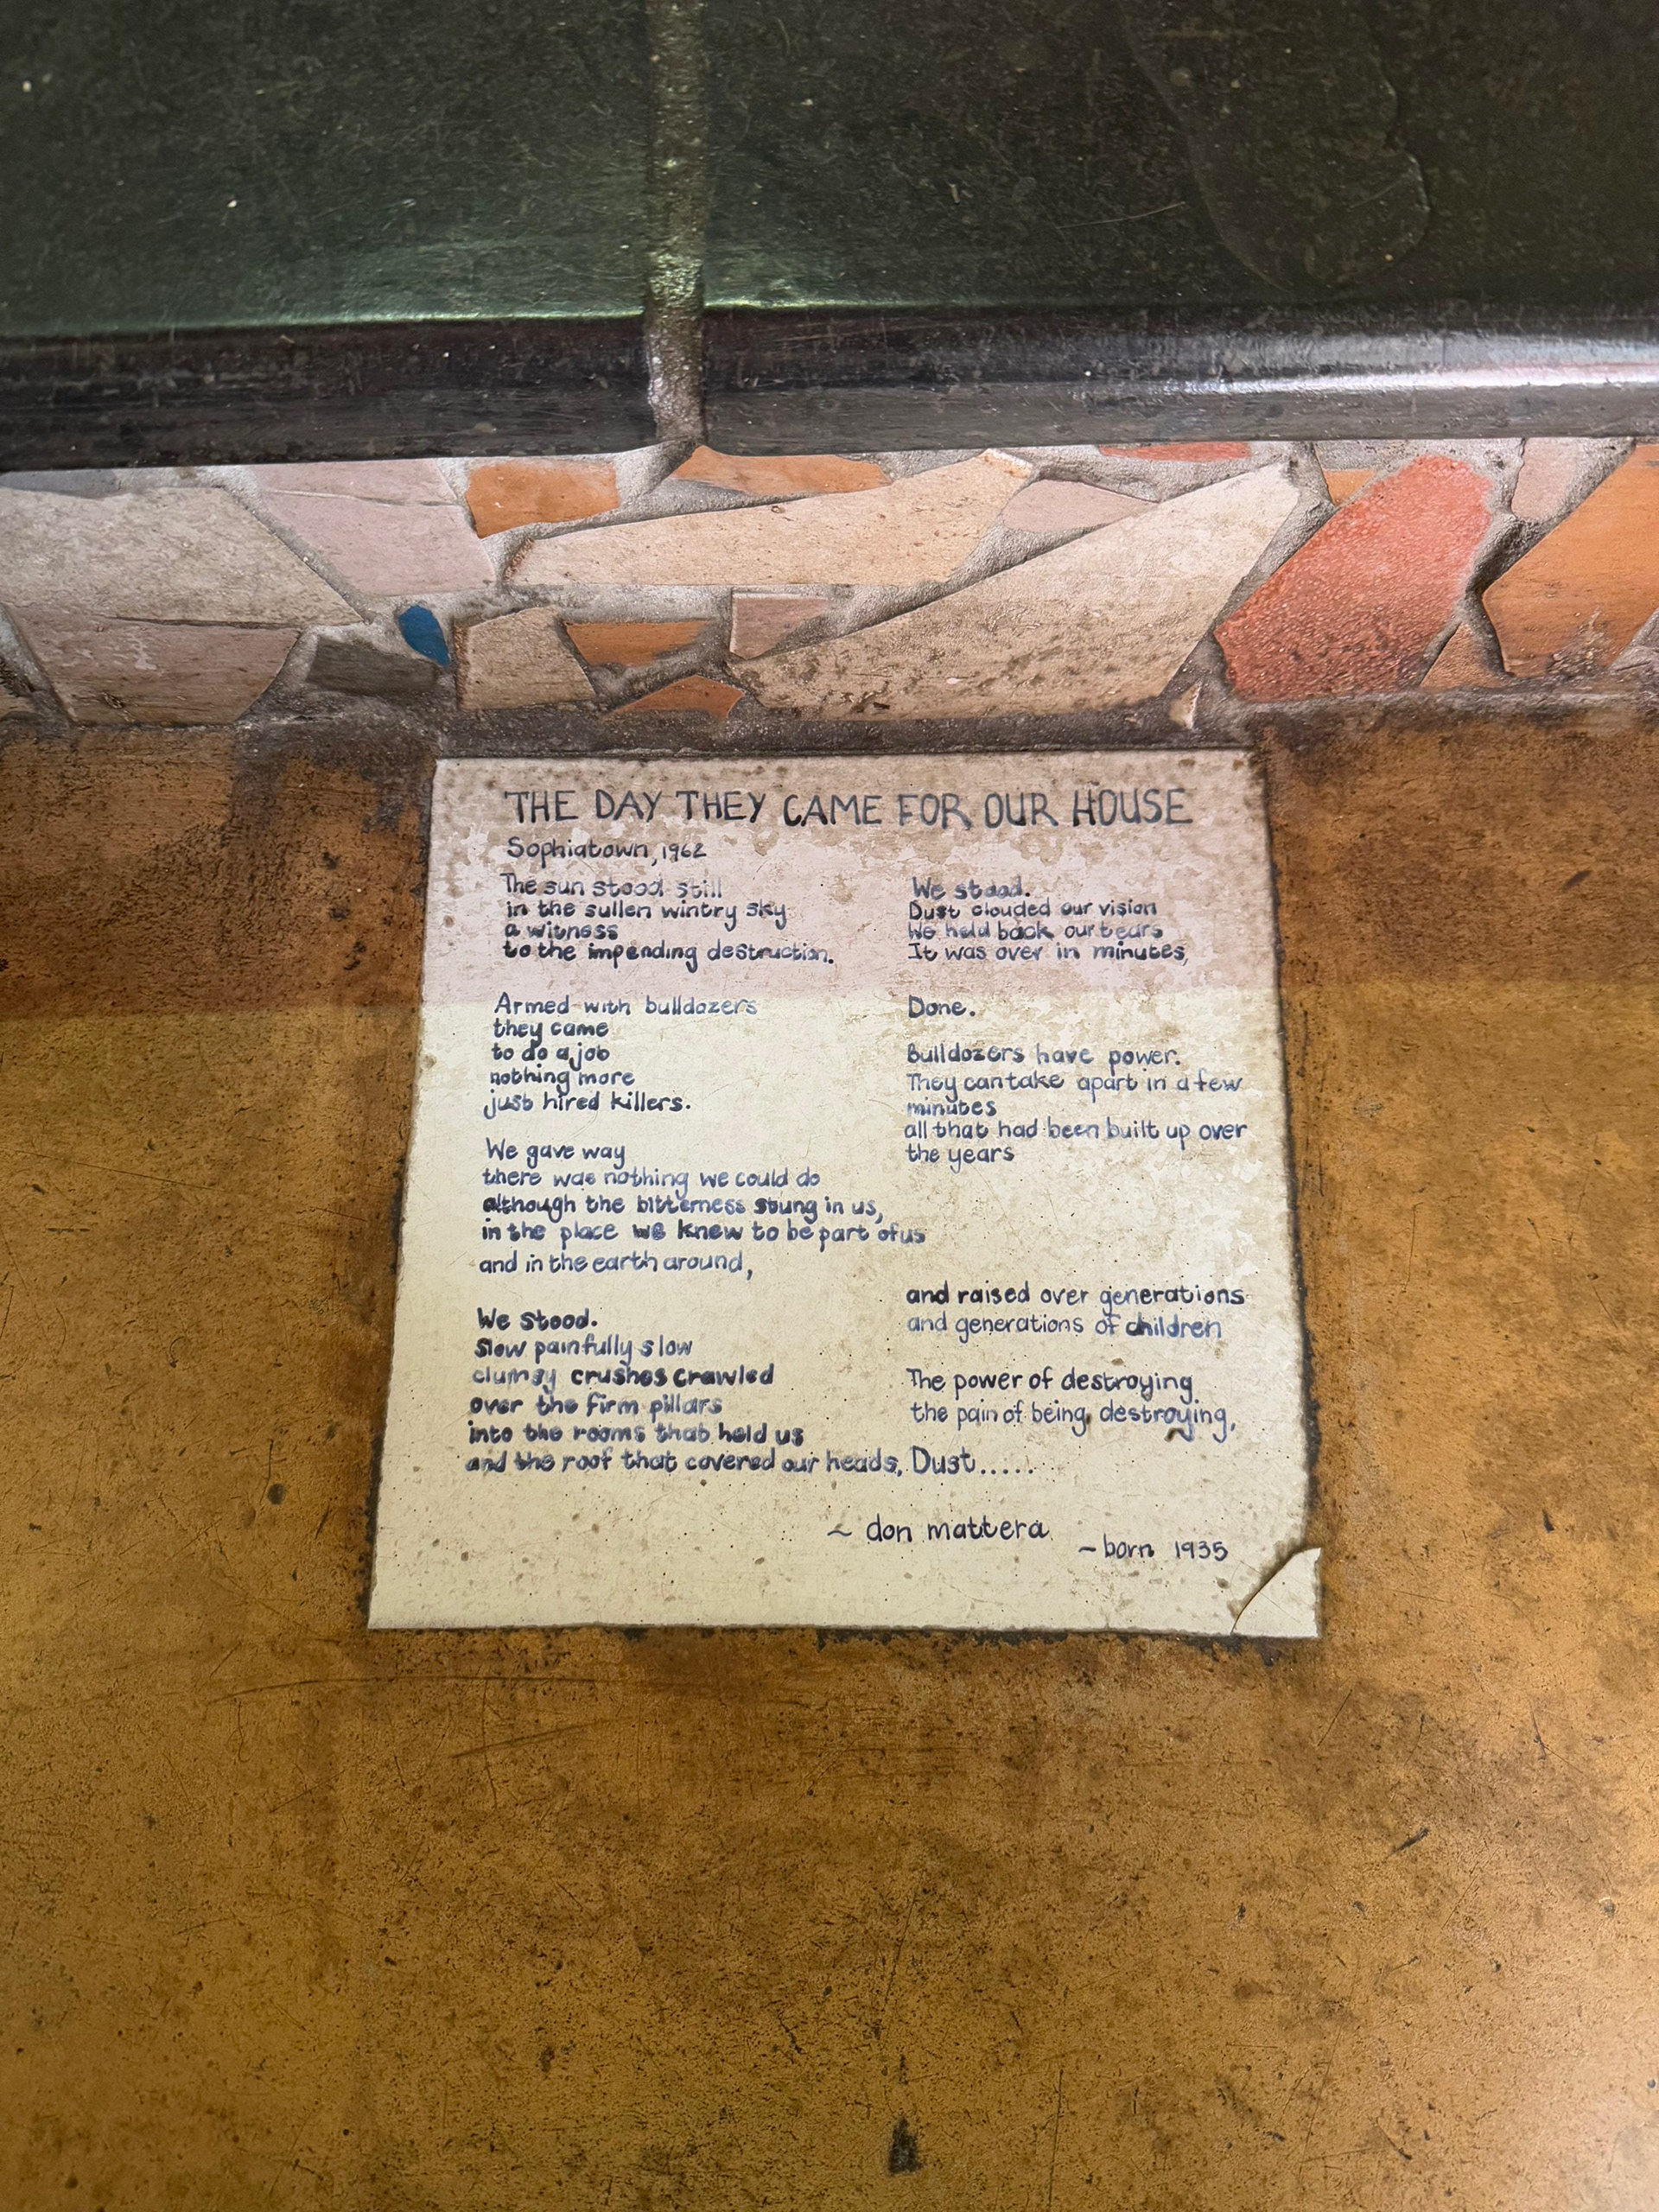 THE DAY THEY CAME FOR OUR HOUSE
Sophiatown, 1962
The sun stood still
in the sullen wintry sky
a witness
to the impending destruction.
Armed with bulldozers
they came
to do a job
nothing more
just hired killers.
We gave way
there was nothing we could do
although the bitterness stung in us,
in the place we knew to be part of us
and in the earth around,
We stood.
Slow painfully slow
clumsy crushes crawled
over the firm pillars
into the rooms that held us
and the roof that covered our heads.
We stood.
Dust clouded our vision
We held back our tears
It was over in minutes,
Done.
Bulldozers have power.
They can take apart in a few
minutes
all that had been built up over
the years
and raised over generations
and generations of children
The power of destroying
the pain of being destroying,
Dust.....
~ don mattera
~ born 1935